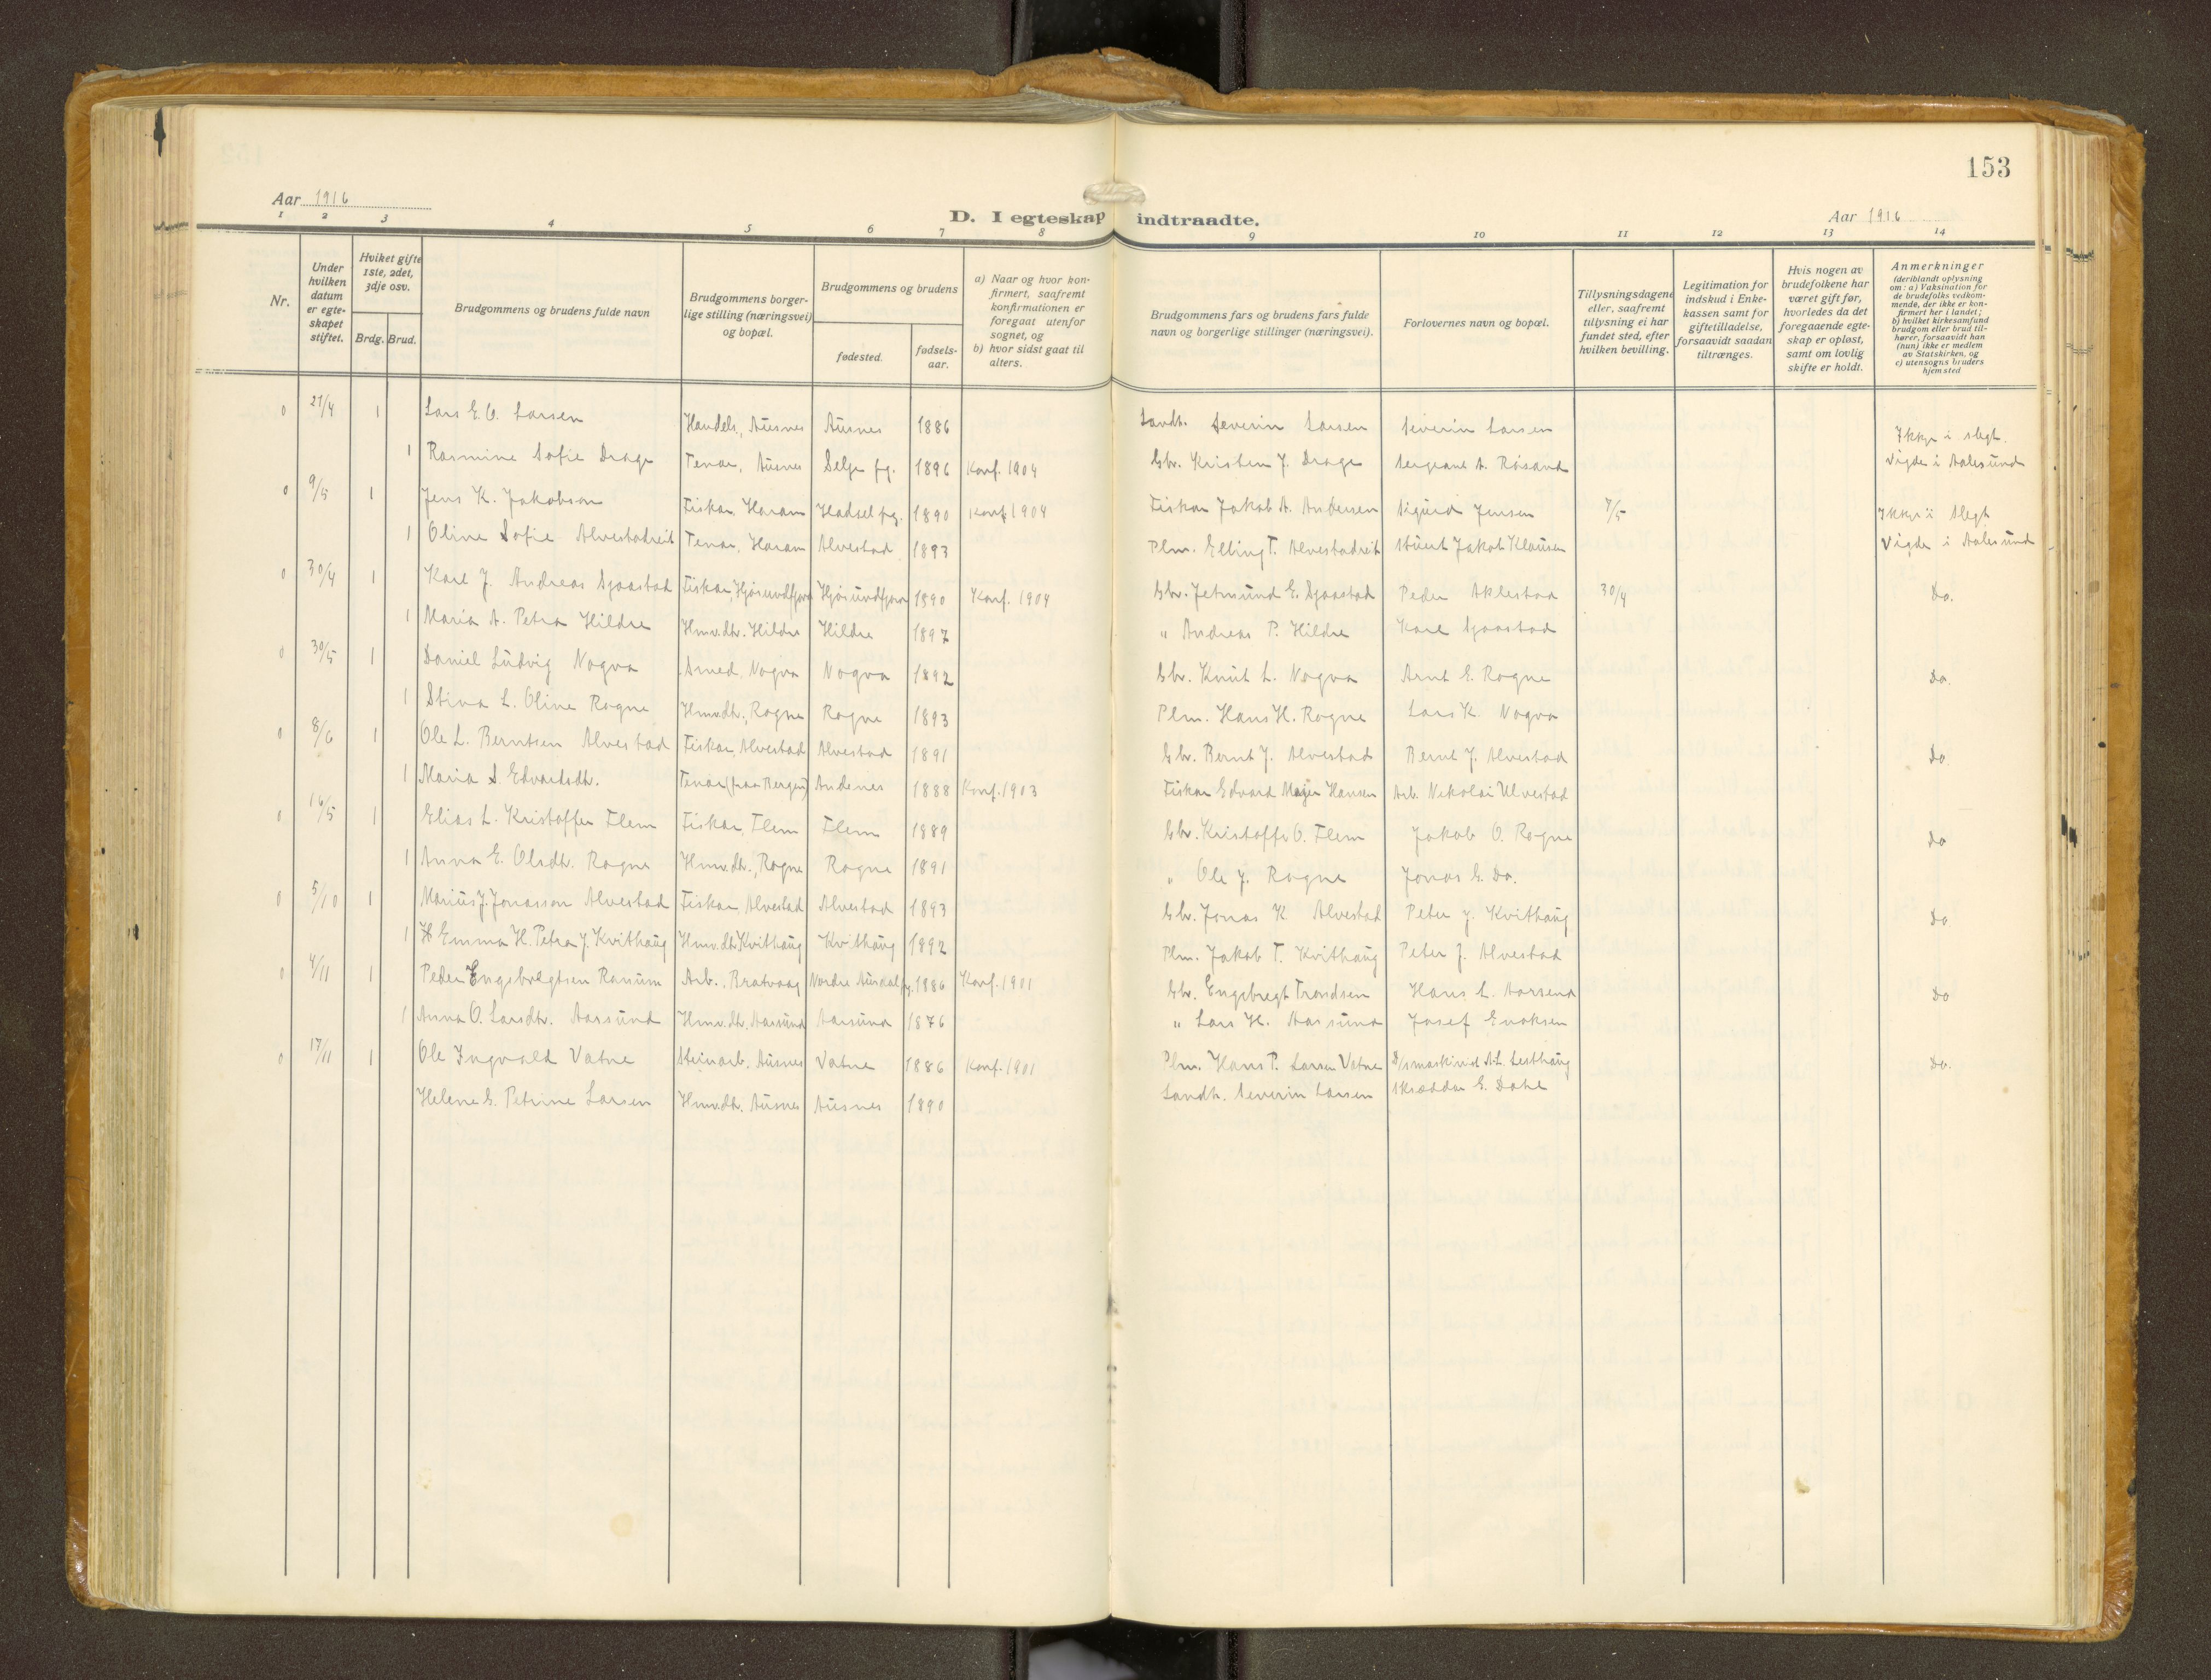 153
Aar 1916
D. I egteskap indtraadte.
Aar 1916
1 2 3 4 5 6 7 8 9 10 11 12 13 14
Nr.
Under hvilken datum er egteskapet stiftet.
Hviket gifte 1ste, 2det, 3dje osv.
Brdg. Brud.
Brudgommens og brudens fulde navn
Brudgommens borgerlige stilling (næringsvei) og bopæl.
Brudgommens og brudens
fødested.
fødselsaar.
a) Naar og hvor konfirmert, saafremt konfirmationen er foregaat utenfor sognet, og
b) hvor sidst gaat til alters.
Brudgommens fars og brudens fars fulde navn og borgerlige stillinger (næringsvei).
Forlovernes navn og bopæl.
Tillysningsdagene eller, saafremt tillysning ei har fundet sted, efter hvilken bevilling.
Legitimation for indskud i Enkekassen samt for giftetilladelse, forsaavidt saadan tiltrænges.
Hvis nogen av brudefolkene har været gift før, hvorledes da det foregaaende egteskap er opløst, samt om lovlig skifte er holdt.
Anmerkninger (deriblandt oplysning om: a) Vaksination for de brudefolks vedkommende, der ikke er konfirmert her i landet; b) hvilket kirkesamfund brudgom eller brud tilhører, forsaavidt han (hun) ikke er medlem av Statskirken, og c) utensogns bruders hjemsted
0 27/4 1 Lars E. O. Larsen Handels., Ausnes Ausnes 1886 Landh. Severin Larsen Severin Larsen Ikkje i slegt.
1 Rasmine Sofie Drage Tenar, Ausnes Selje pg. 1896 Konf. 1904 Gbr. Kristen J. Drage Sergeant A. Røsand Vigde i Aalesund
0 9/5 1 Jens K. Jakobson Fiskar, Haram Hadsel pg. 1890 Konf. 1904 Fiskar Jakob A. Andersen Sigurd Jensen 7/5 Ikkje i slegt
1 Oline Sofie Alvestadreit Tenar, Haram Alvestad 1893 Plm. Elling T. Alvestadreit Stuert Jakob Klausen Vigde i Aalesund
0 30/4 1 Karl J. Andreas Sjaastad Fiskar, Hjørundfjord Hjørundfjord 1890 Konf. 1904 Gbr. Jetmund E. Sjaastad Peder Aklestad 30/4 Do.
1 Maria A. Petra Hildre Hmv. dtr. Hildre Hildre 1897 " Andreas P. Hildre Karl Sjaastad
0 30/5 1 Daniel Ludvig Nogva Smed, Nogva Nogva 1892 Gbr. Knut L. Nogva Arnt E. Rogne Do.
1 Stina L. Oline Rogne Hmv. dtr., Rogne Rogne 1893 Plm. Hans H. Rogne Lars K. Nogva
0 8/6 1 Ole L. Berntsen Alvestad Fiskar, Alvestad Alvestad 1891 Gbr. Bernt J. Alvestad Bernt J. Alvestad Do
1 Maria S. Edvardsdtr. Tenar (fraa Bergen) Andenes 1888 Konf. 1903 Fiskar Edvard Majer Hansen Arb. Nikolai Ulvestad
0 16/5 1 Elias L. Kristoffer Flem Fiskar, Flem Flem 1889 Gbr. Kristoffer O. Flem Jakob O. Rogne Do
1 Anna E. Olsdtr. Rogne Hmv. dtr., Rogne Rogne 1891 " Ole J. Rogne Jonas E. Do.
0 5/10 1 Marius J. Jonasson Alvestad Fiskar, Alvestad Alvestad 1893 Gbr. Jonas K. Alvestad Peter J. Kvithaug Do
1 Emma H. Petra J. Kvithaug Hmv. dtr. Kvithaug Kvithaug 1892 Plm. Jakob T. Kvithaug Peter J. Alvestad
0 4/11 1 Peder Engebregtsen Ranum Arb., Bratvaag Nordre Aurdal pg. 1886 Konf. 1901 Gbr. Engebregt Trondsen Hans L. Aarsund Do
1 Anna O. Larsdtr. Aarsund Hmv. dtr., Aarsund Aarsund 1876 " Lars H. Aarsund Josef Enoksen
0 17/11 1 Ole Ingvald Vatne Steinarb., Ausnes Vatne 1886 Konf. 1901 Plm. Hans P. Larsen Vatne D/smaskinist A. L. Lesthaug Do.
Helene G. Petrine Larsen Hmv. dtr. Ausnes Ausnes 1890 Landh. Severin Larsen Skræddar E. Dahl